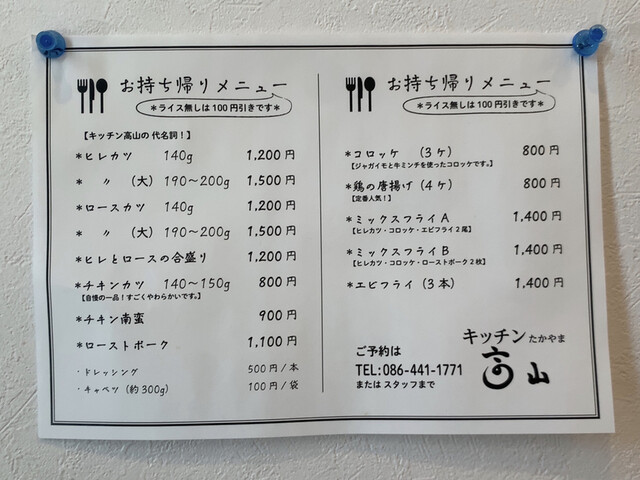 お持ち帰りメニュー
＊ライス無しは100円引きです＊
【キッチン高山の代名詞！】
＊ヒレカツ 140g 1,200円
＊ 〃 （大）190〜200g 1,500円
＊ロースカツ 140g 1,200円
＊ 〃 （大）190〜200g 1,500円
＊ヒレとロースの合盛り 1,200円
＊チキンカツ 140〜150g 800円
【自慢の一品！すごくやわらかいです。】
＊チキン南蛮 900円
＊ローストポーク 1,100円
・ドレッシング 500円/本
・キャベツ（約300g） 100円/袋
お持ち帰りメニュー
＊ライス無しは100円引きです＊
＊コロッケ （3ヶ） 800円
【ジャガイモと牛ミンチを使ったコロッケです。】
＊鶏の唐揚げ（4ヶ） 800円
【定番人気！】
＊ミックスフライA 1,400円
【ヒレカツ・コロッケ・エビフライ2尾】
＊ミックスフライB 1,400円
【ヒレカツ・コロッケ・ローストポーク2枚】
＊エビフライ（3本） 1,400円
ご予約は
TEL:086-441-1771
または スタッフまで
キッチン たかやま
高山